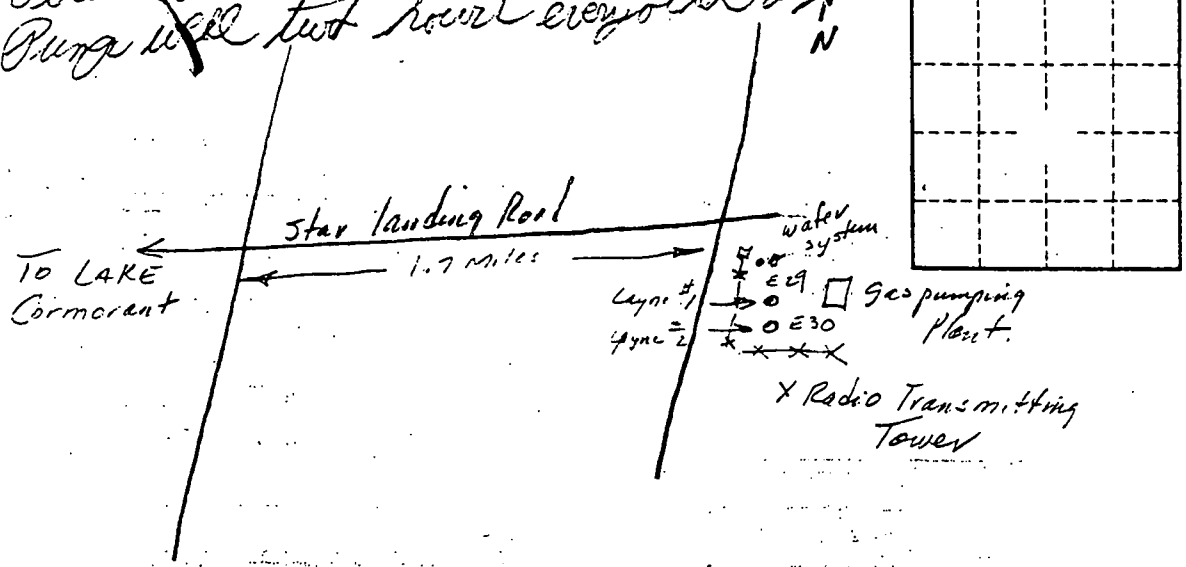 Pump well two hours every
N
Star landing Road
1.7 Miles
TO LAKE
Cormorant
water
system
E29
Layne #1
Layne #2
E30
Gas pumping
Plant.
X Radio Transmitting
Tower